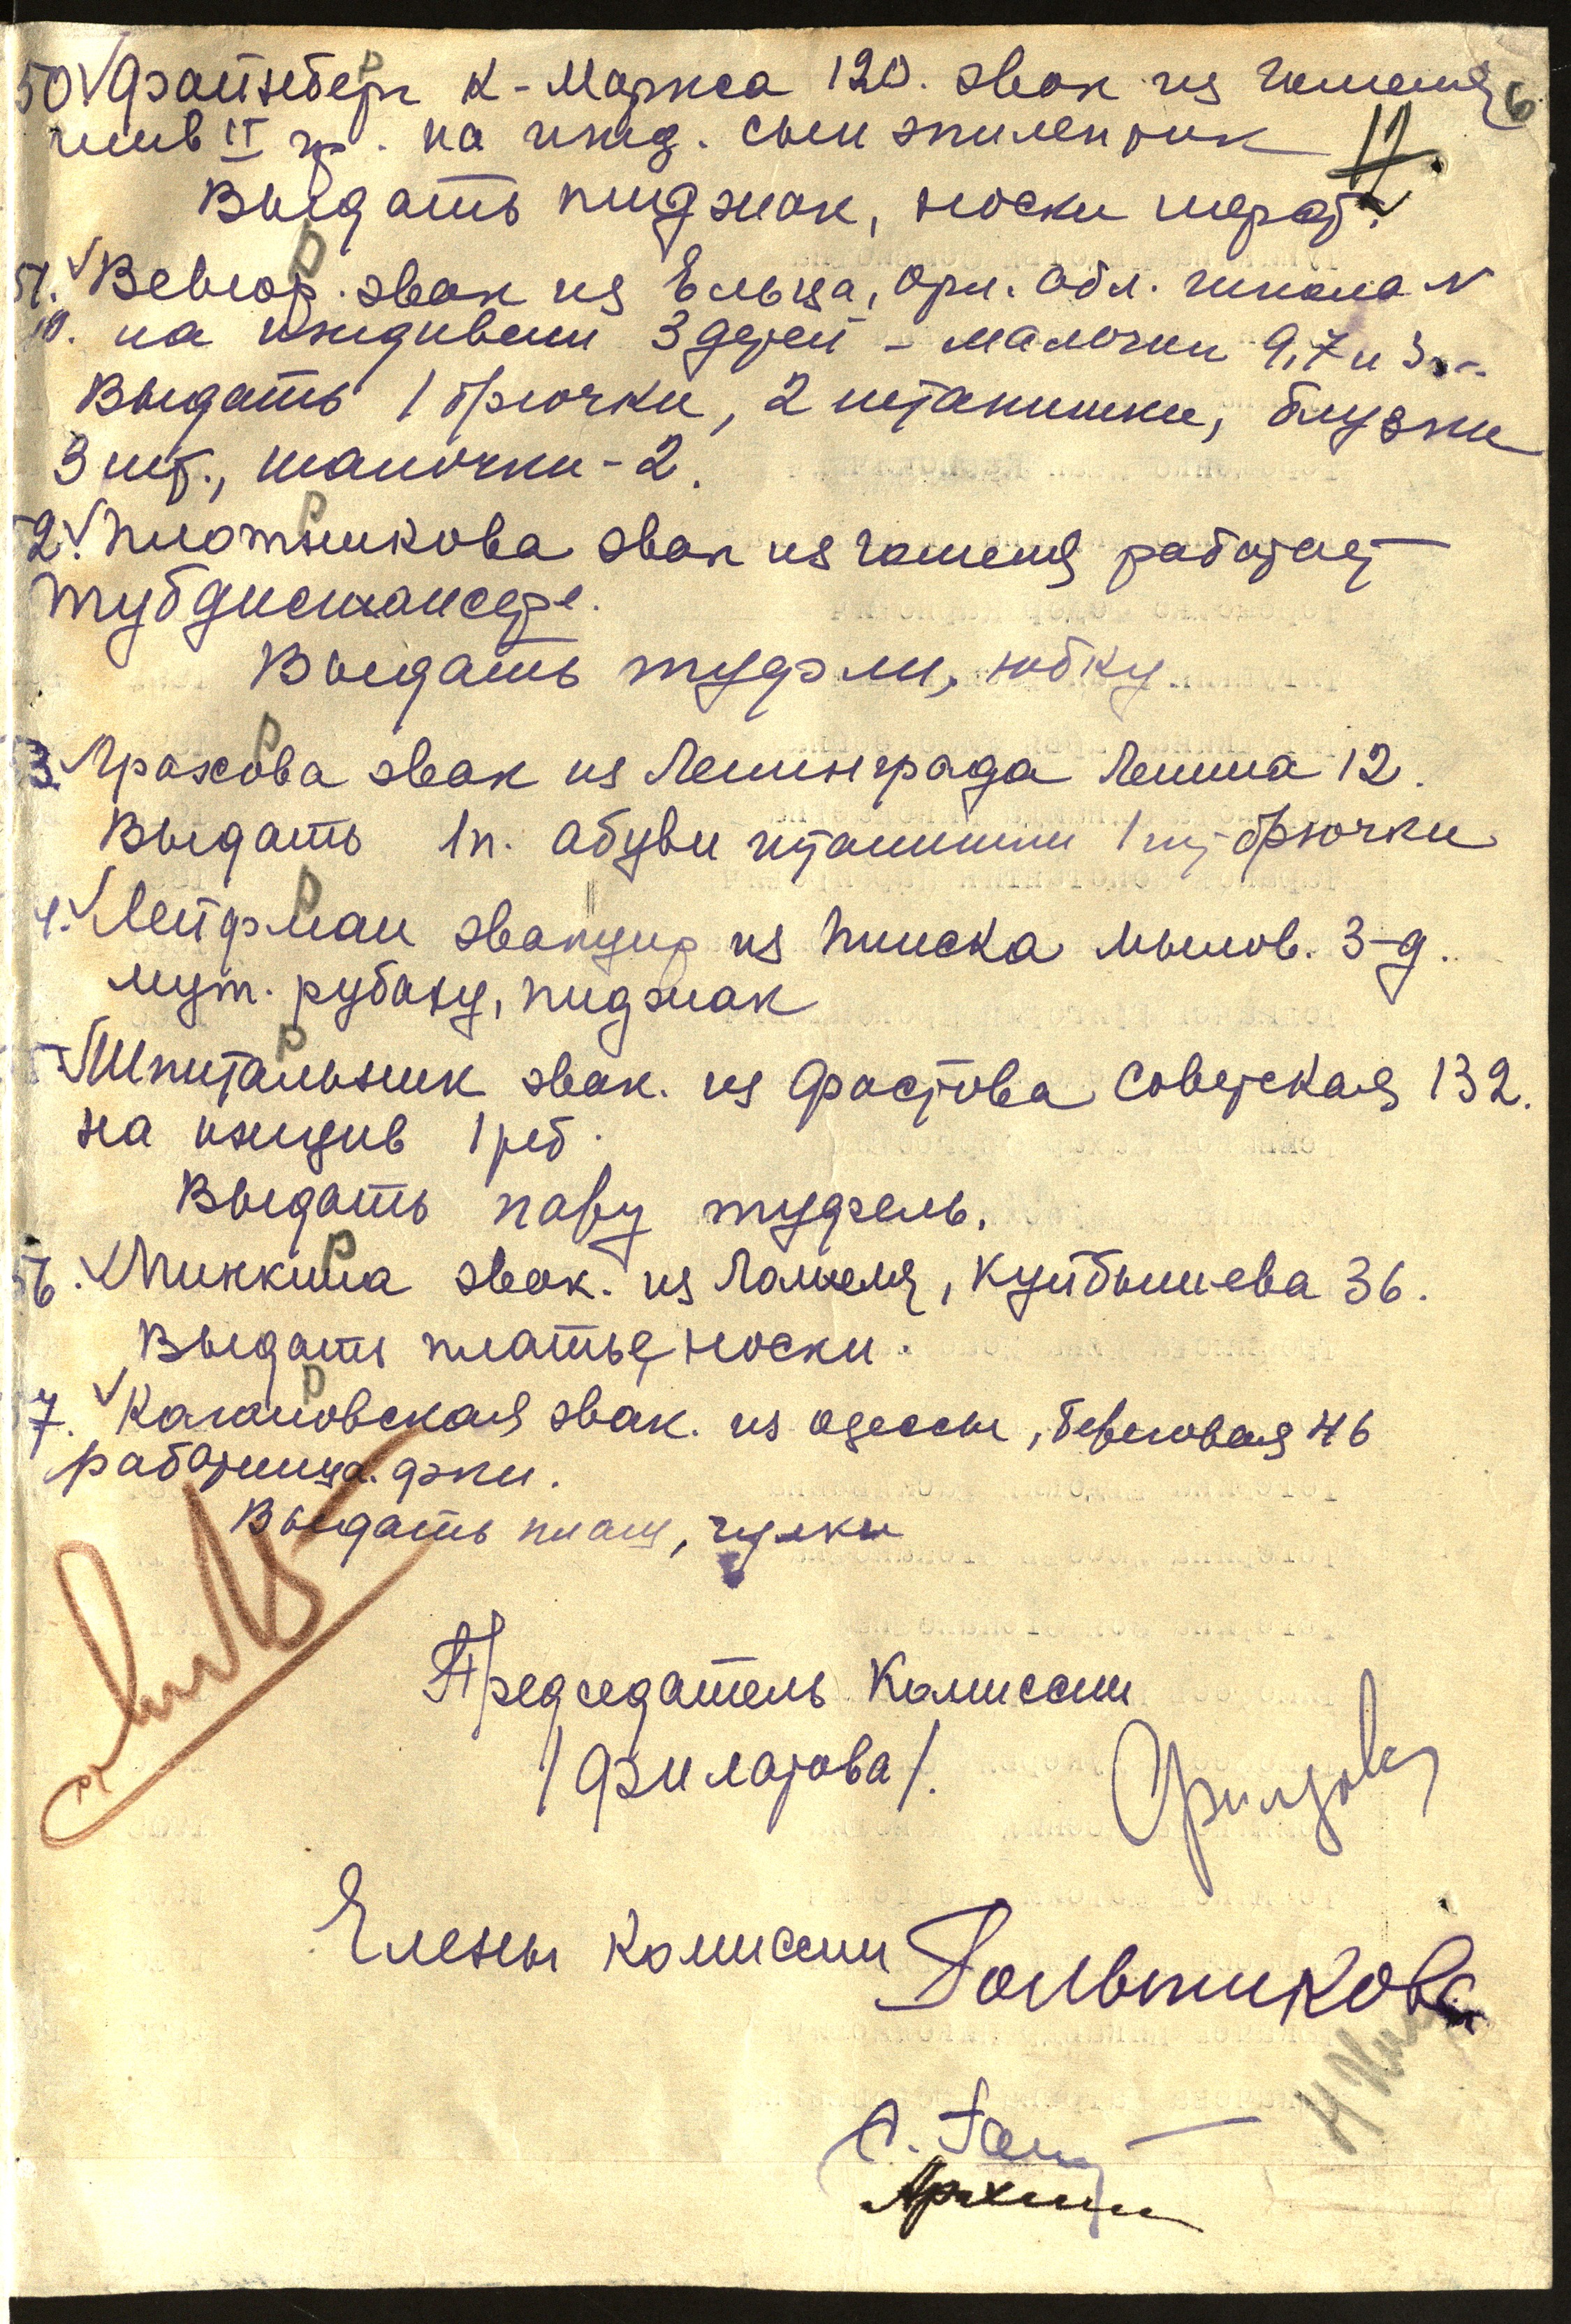 50 Файнберг К-Маркса 120. эвак из Гомеля 6
инв II гр. на ижд. сын эпилептик 11
Выдать пиджак, носки шерст.
51. Вевюр. эвак из Ельца, Орл. Обл. школа N
10. на иждивени 3 детей - мальчики 9, 7 и 3
Выдать 1 брючки, 2 штанишки, блузки
3 шт., шапочки - 2.
2. Плотникова эвак из Гомеля работает
тубдиспансере.
Выдать туфли, юбку
3. Грахова эвак из Ленинграда Ленина 12.
Выдать 1 п. абуви штанишки 1 шт брючки
4. Лейфман эвакуир из Пинска мылов. З-д.
муж. рубаху, пиджак
Шпитальник эвак. из Фастова Советская 132.
на иждив 1 реб.
Выдать пару туфель.
56. Пиккина эвак. из Гомеля, Куйбышева 36.
Выдать платье, носки.
7. Кагановская эвак. из Одессы, Береговая 46
работница.
Выдать плащ, чулки
Председатель Комиссии
/Филатова/. Филатова
Члены комиссии